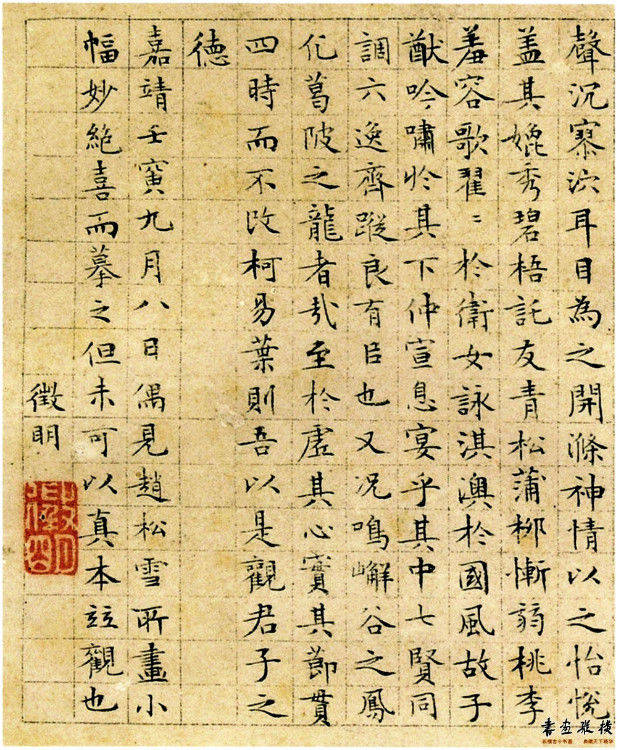 聲沉寥沉耳目為之開滌神情以之怡悅
蓋其媲秀碧梧託友青松蒲柳慚弱桃李
羞容歌翟〻於衛女詠淇澳於國風故子
猷吟嘯於其下仲宣息宴乎其中七賢同
調六逸齊蹤良有㠯也又况鳴嶰谷之鳳
化葛陂之龍者哉至於虛其心實其節貫
四時而不改柯易葉則吾以是觀君子之
德
嘉靖壬寅九月八日偶見趙松雪所畫小
幅妙絶喜而摹之但未可以真本竝觀也
徵明
書画縱橫